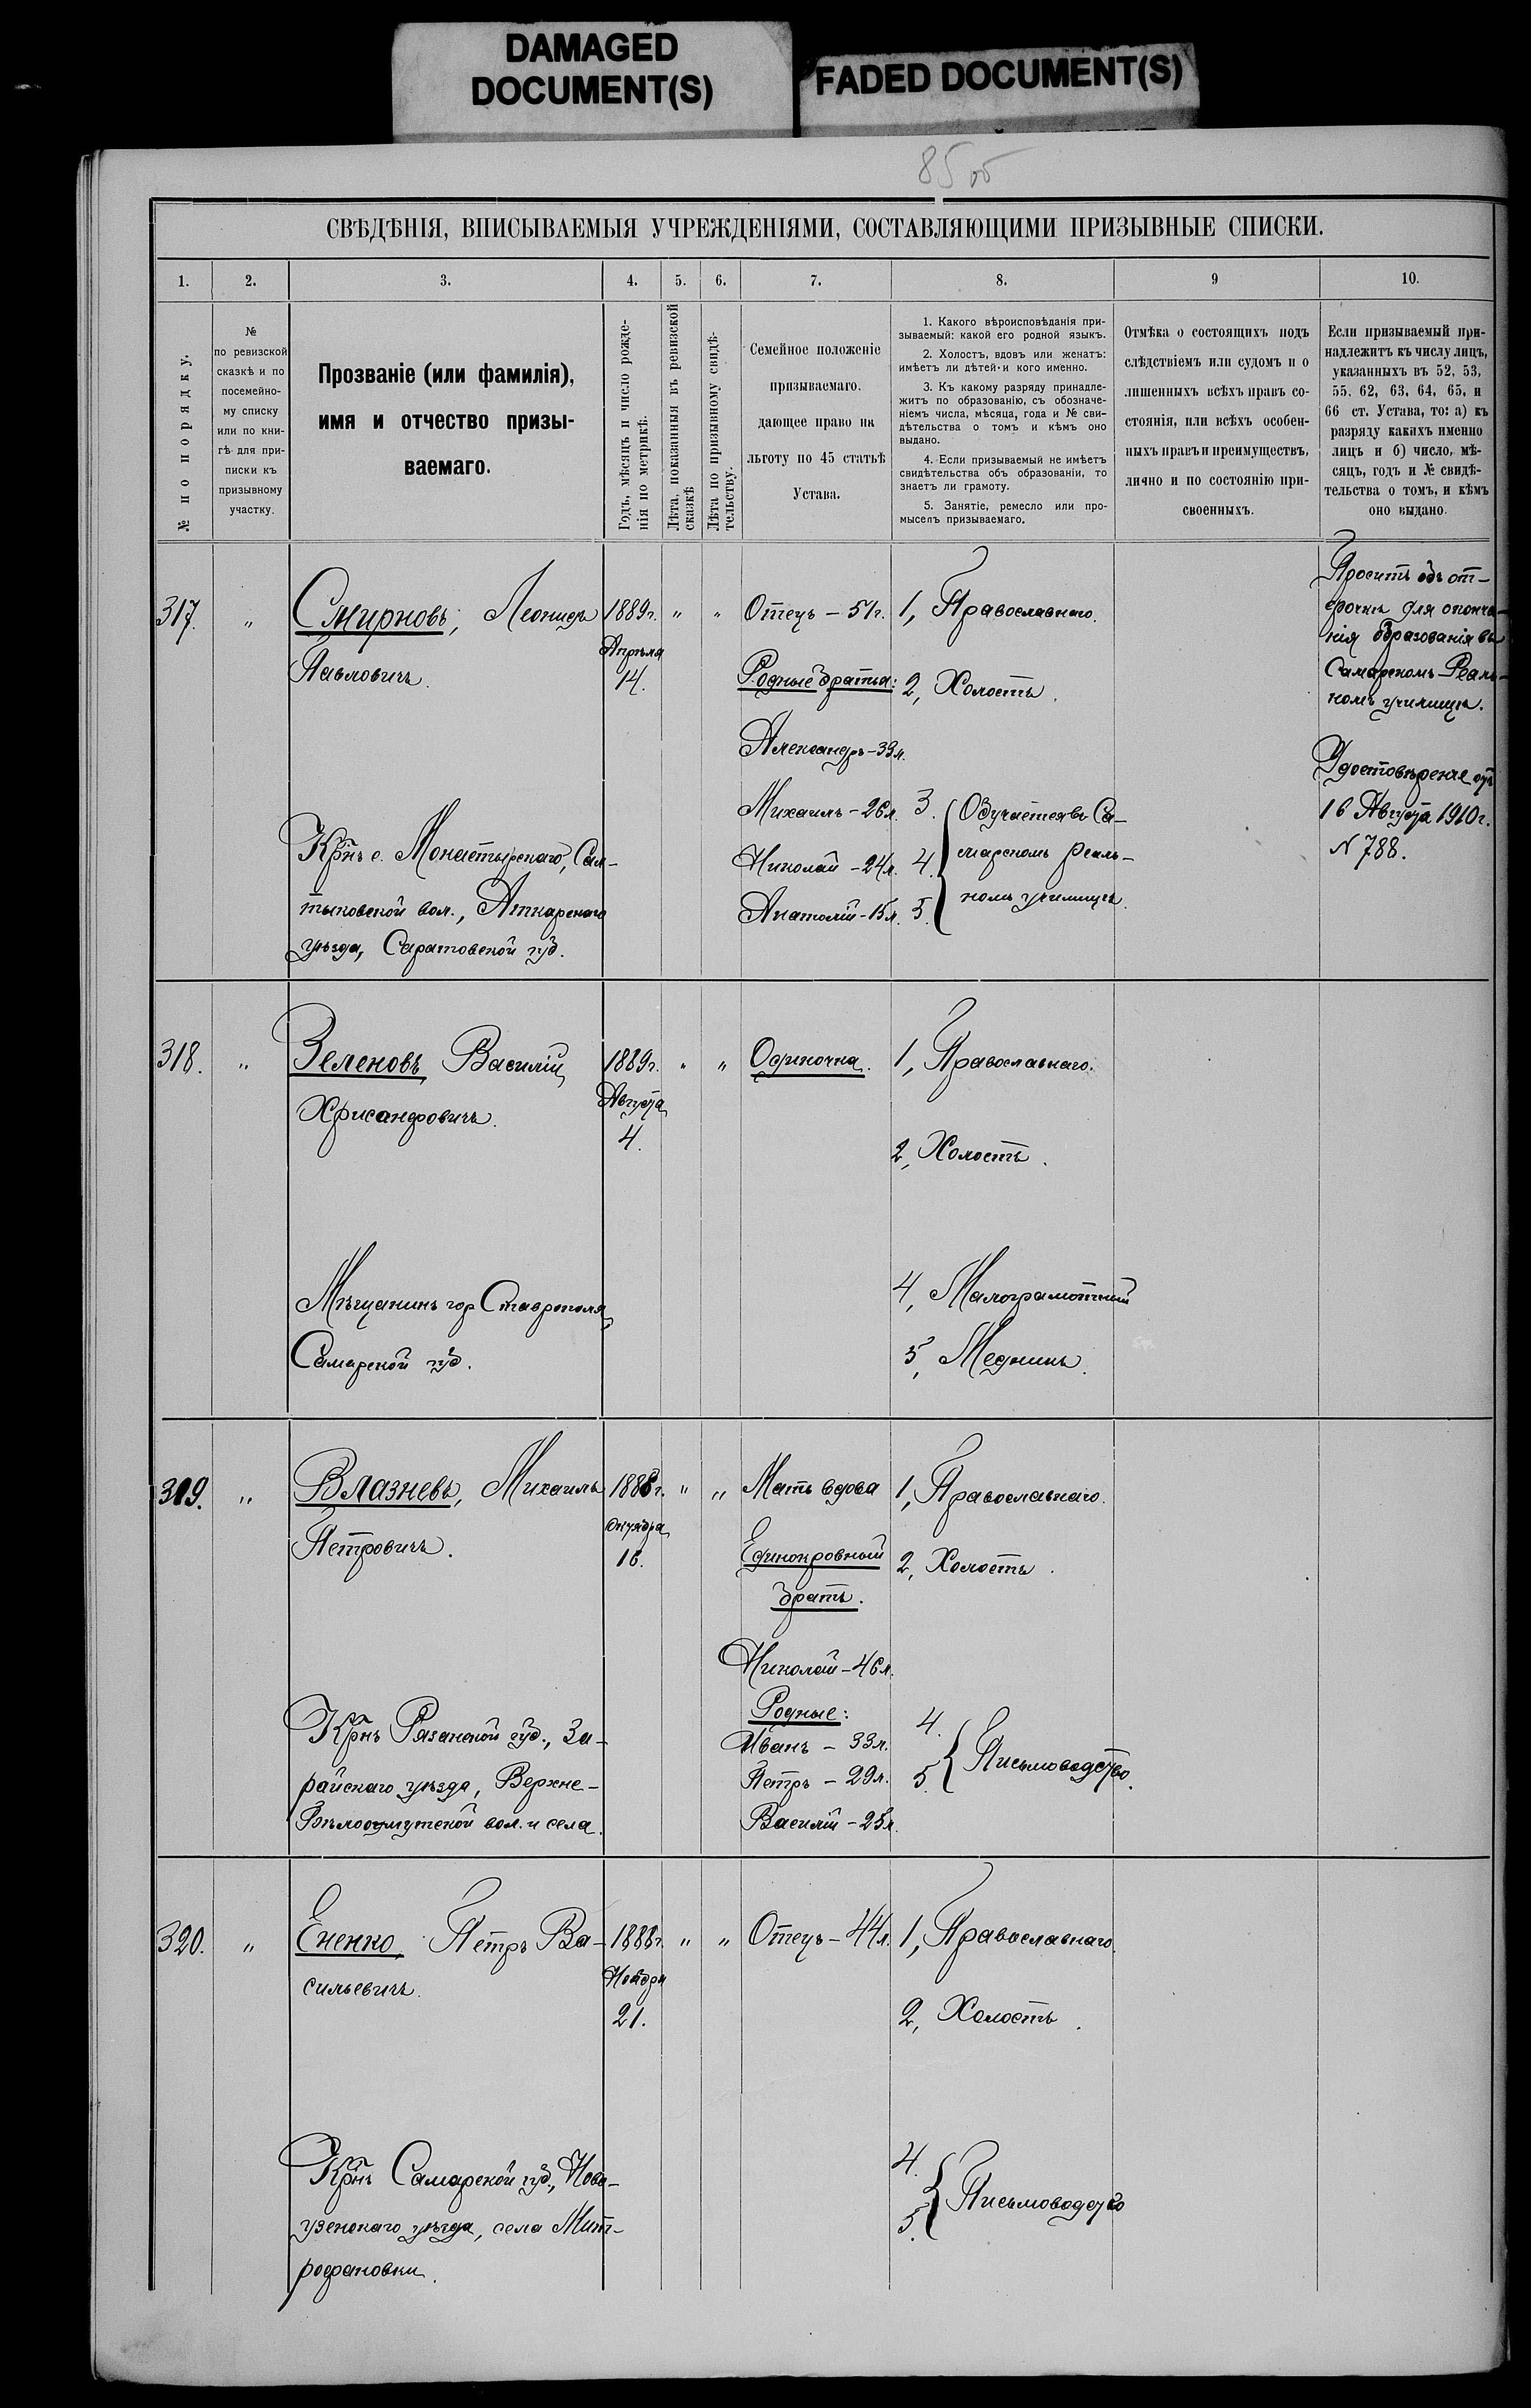 DAMAGED
DOCUMENT(S)
FADED DOCUMENT(S)
85 об
СВѢДѢНІЯ, ВПИСЫВАЕМЫЯ УЧРЕЖДЕНІЯМИ, СОСТАВЛЯЮЩИМИ ПРИЗЫВНЫЕ СПИСКИ.
1.
2.
3.
4.
5.
6.
7.
8.
9
10.
№ по порядку.
№
по ревизской
сказкѣ и по
посемейно-
му списку
или по кни-
гѣ для при-
писки къ
призывному
участку.
Прозваніе (или фамилія),
имя и отчество призы-
ваемаго.
Годъ, мѣсяцъ и число рожде-
нія по метрикѣ.
Лѣта, показанныя въ ревизской
сказкѣ
Лѣта по призывному свидѣ-
тельству.
Семейное положеніе
призываемаго,
дающее право на
льготу по 45 статьѣ
Устава.
1. Какого вѣроисповѣданія при-
зываемый: какой его родной языкъ.
2. Холостъ, вдовъ или женатъ:
имѣетъ ли дѣтей и кого именно.
3. Къ какому разряду принадле-
житъ по образованію, съ обозначе-
ніемъ числа, мѣсяца, года и № сви-
дѣтельства о томъ и кѣмъ оно
выдано.
4. Если призываемый не имѣетъ
свидѣтельства объ образованіи, то
знаетъ ли грамоту.
5. Занятіе, ремесло или про-
мыселъ призываемаго.
Отмѣка о состоящихъ подъ
слѣдствіемъ или судомъ и о
лишенныхъ всѣхъ правъ со-
стоянія, или всѣхъ особен-
ныхъ правъ и преимуществъ,
лично и по состоянію при-
своенныхъ.
Если призываемый при-
надлежитъ къ числу лицъ,
указанныхъ въ 52, 53,
55, 62, 63, 64, 65, и
66 ст. Устава, то: а) къ
разряду какихъ именно
лицъ и б) число, мѣ-
сяцъ, годъ и № свидѣ-
тельства о томъ, и кѣмъ
оно выдано.
317. "
Смирновъ, Леонидъ
Павловичъ.
Крнъ с. Монастырскаго, Сал-
тыковской вол., Аткарскаго
уѣзда, Саратовской губ.
1889г.
Апрѣля
14.
" "
Отецъ – 51г.
Родные братья:
Александръ – 33л.
Михаилъ – 26л.
Николай – 24л.
Анатолій – 15л.
1, Православнаго.
2, Холостъ.
3. Обучается въ Са-
4. марскомъ Реаль-
5. номъ училищѣ.
Проситъ объ от-
срочкѣ для оконча-
нія образованія въ
Самарскомъ Реаль-
номъ училищѣ.
Удостовѣреніе отъ
16 Августа 1910г.
N 788.
318. "
Зеленовъ Василій
Хрисанфовичъ.
Мѣщанинъ гор Ставрополя
Самарской губ.
1889г.
Августа
4.
" "
Одиночка.
1, Православнаго.
2, Холостъ.
4, Малограмотный
5, Медникъ.
319. "
Влазневъ, Михаилъ
Петровичъ.
Крнъ Рязанской губ., За-
райскаго уѣзда, Верхне-
Бѣлоомутской вол. и села.
1888г.
Октября
16.
" "
Мать вдова
Единокровный
братъ.
Николай – 46л.
Родные:
Иванъ – 33л.
Петръ – 29л.
Василій – 25л.
1, Православнаго.
2, Холостъ.
4.
5. Письмоводство.
320. "
Ененко Петръ Ва-
сильевичъ.
Крнъ Самарской губ., Ново-
узенскаго уѣзда, села Мит-
рофановки.
1888г.
Ноября
21.
" "
Отецъ – 44л.
1, Православнаго.
2, Холостъ.
4.
5. Письмоводство